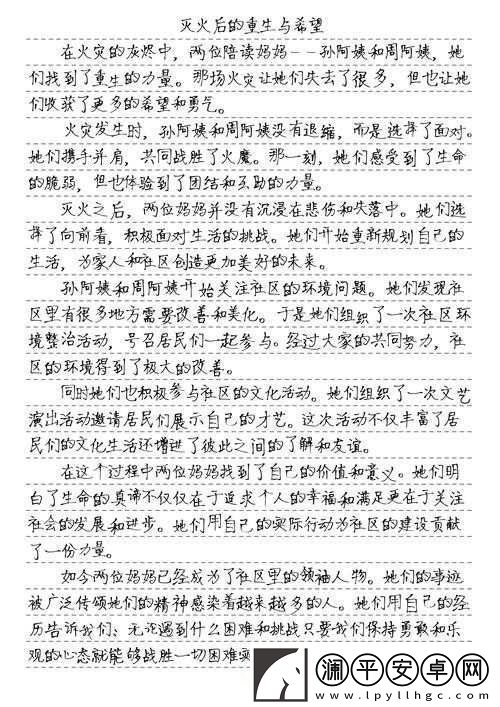 灭火后的重生与希望
在火灾的灰烬中，两位陪读妈妈--孙阿姨和周阿姨，她
们找到了重生的力量。那场火灾让她们失去了很多，但也让她
们收获了更多的希望和勇气。
火灾发生时，孙阿姨和周阿姨没有退缩，而是选择了面对。
她们携手并肩，共同战胜了火魔。那一刻，她们感受到了生命
的脆弱，但也体验到了团结和互助的力量。
灭火之后，两位妈妈并没有沉浸在悲伤和失落中。她们选
择了向前看，积极面对生活的挑战。她们开始重新规划自己的
生活，为家人和社区创造更加美好的未来。
孙阿姨和周阿姨开始关注社区的环境问题。她们发现社
区里有很多地方需要改善和美化。于是她们组织了一次社区环
境整治活动，号召居民们一起参与。经过大家的共同努力，社
区的环境得到了极大的改善。
同时她们也积极参与社区的文化活动。她们组织了一次文艺
演出活动邀请居民们展示自己的才艺。这次活动不仅丰富了居
民们的文化生活还增进了彼此之间的了解和友谊。
在这个过程中两位妈妈找到了自己的价值和意义。她们明
白了生命的真谛不仅仅在于追求个人的幸福和满足更在于关注
社会的发展和进步。她们用自己的实际行动为社区的建设贡献
了一份力量。
如今两位妈妈已经成为了社区里的领袖人物。她们的事迹
被广泛传颂她们的精神感染着越来越多的人。她们用自己的经
历告诉我们：无论遇到什么困难和挑战只要我们保持勇敢和乐
观的心态就能够战胜一切困难实
澜平安卓网
www.lpyllhgc.com